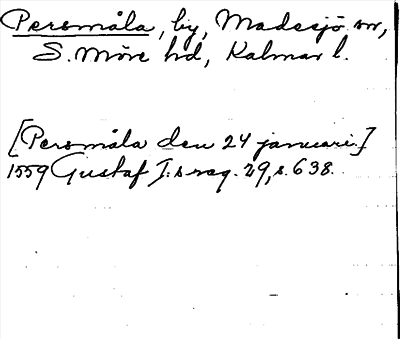 Persmåla, by, Madesjö sn,
S. Möre hd, Kalmar l.
[Persmåla den 24 januari.]
1559 Gustaf I:s reg. 29, s. 638.